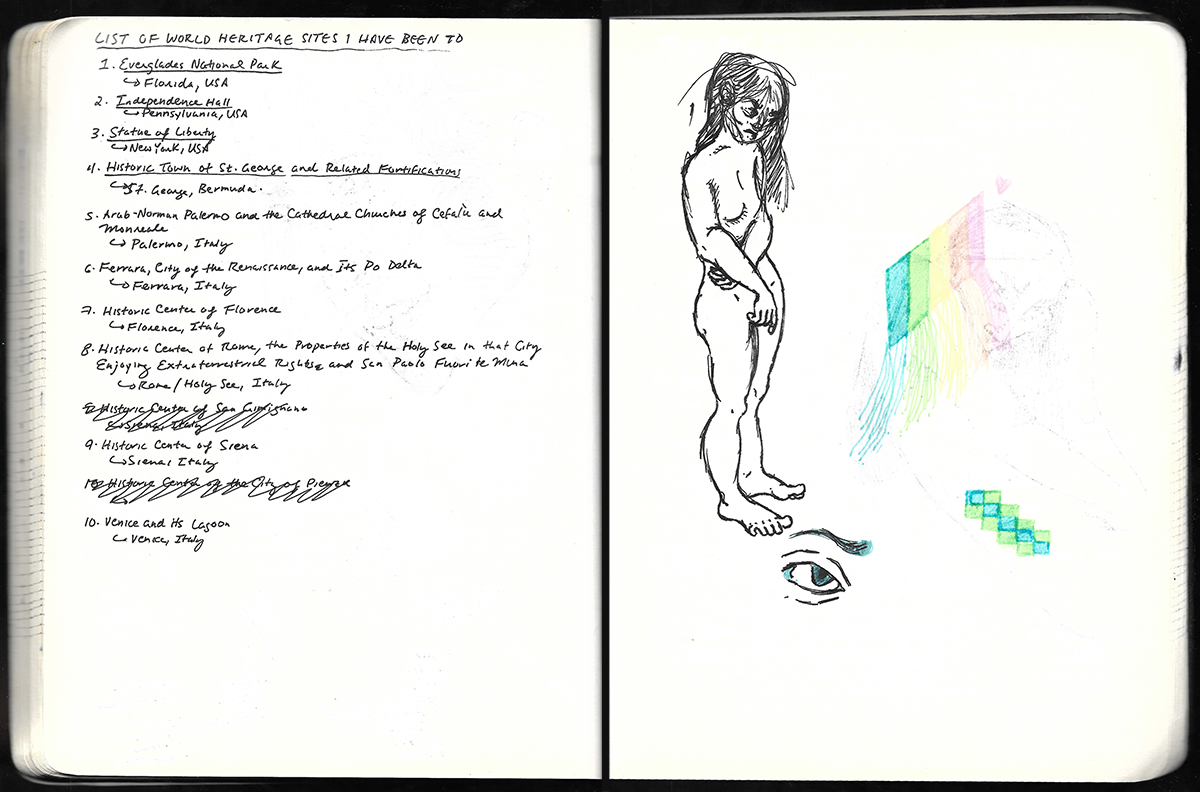 LIST OF WORLD HERITAGE SITES I HAVE BEEN TO
1. Everglades National Park
↳ Florida, USA
2. Independence Hall
↳ Pennsylvania, USA
3. Statue of Liberty
↳ New York, USA
4. Historic Town of St. George and Related Fortifications
↳ St. George, Bermuda.
5. Arab-Norman Palermo and the Cathedral Churches of Cefalù and
Monreale
↳ Palermo, Italy
6. Ferrara, City of the Renaissance, and Its Po Delta
↳ Ferrara, Italy
7. Historic Center of Florence
↳ Florence, Italy
8. Historic Center of Rome, the Properties of the Holy See in that City
Enjoying Extraterrestrial Rights, and San Paolo Fuori le Mura
↳ Rome / Holy See, Italy
9. Historic Center of San Gimignano
↳ Siena, Italy
9. Historic Center of Siena
↳ Siena, Italy
10. Historic Center of the City of Pienza
10. Venice and Its Lagoon
↳ Venice, Italy